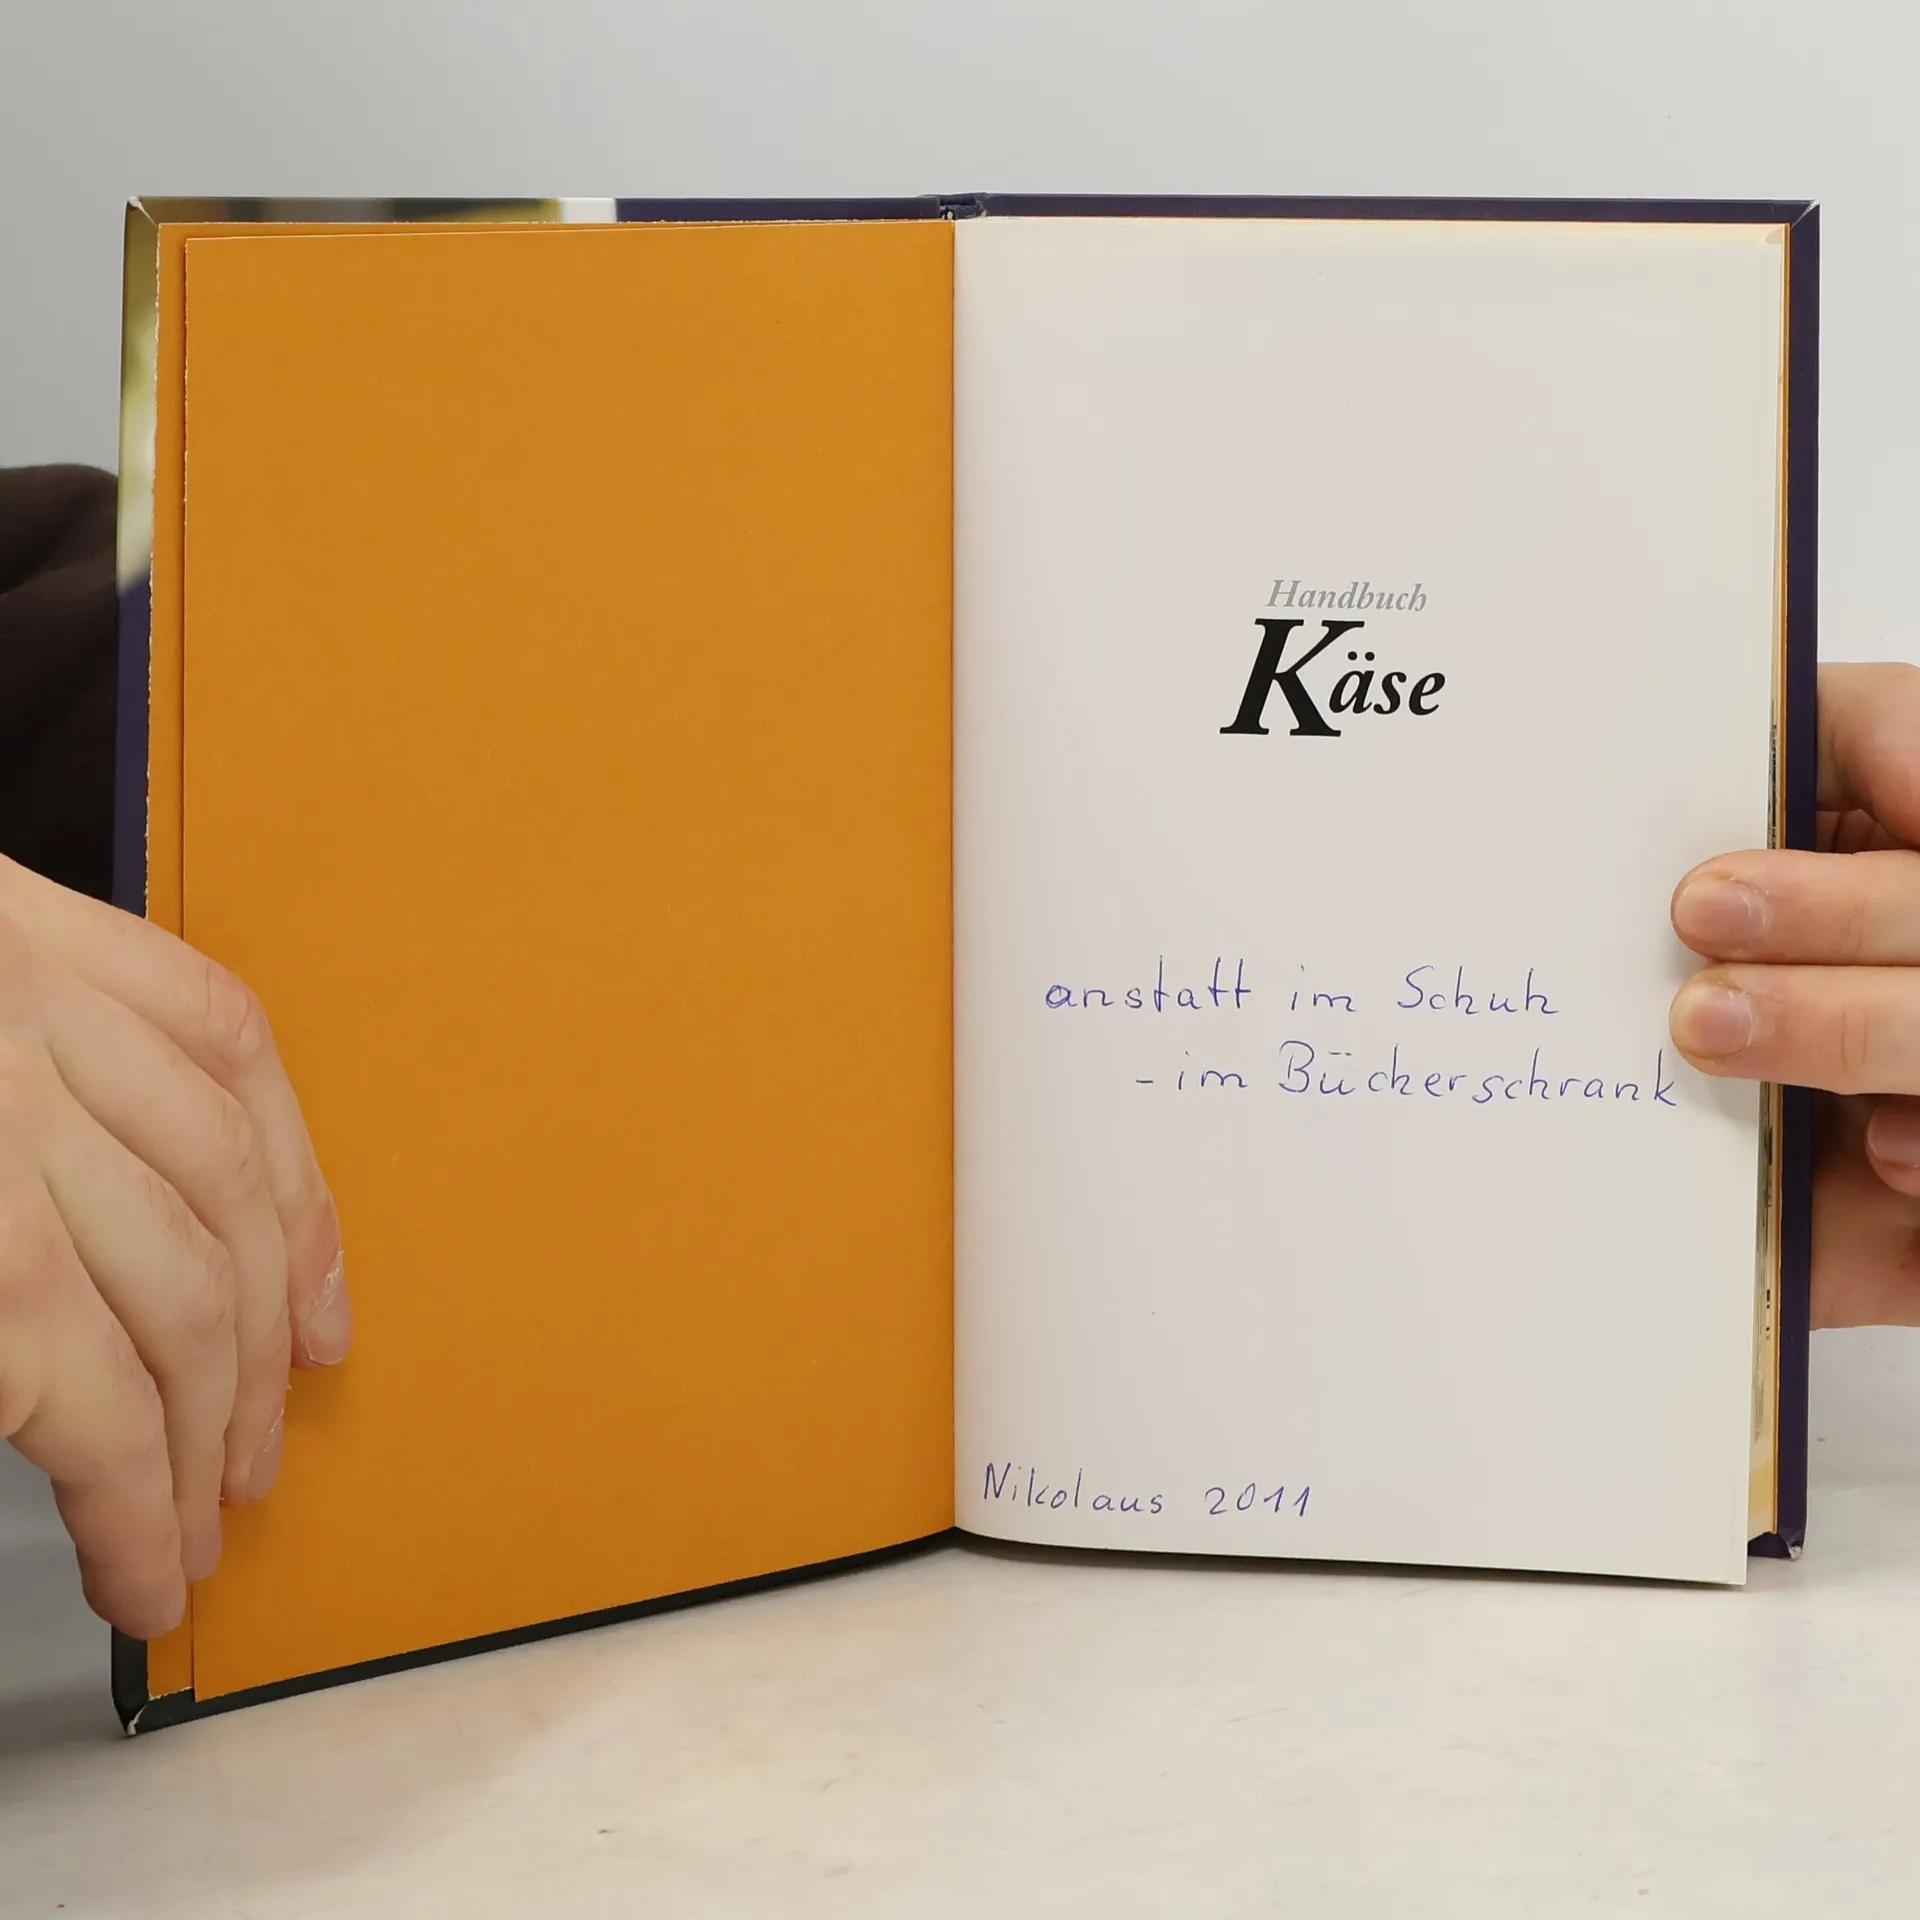 Handbuch
Käse
anstatt im Schuh
- im Bücherschrank
Nikolaus 2011